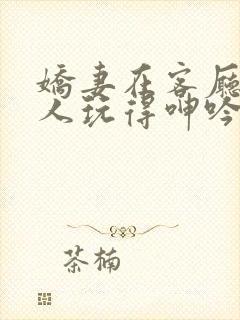 嬌妻在客廳
人玩得呻吟
茶楠